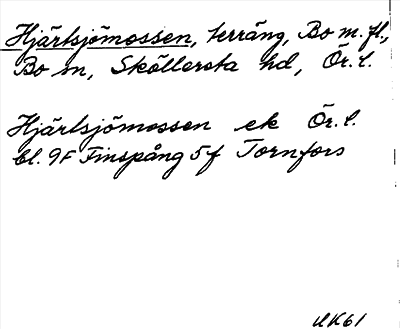 Hjärtsjömossen, terräng, Bo m.fl.,
Bo sn, Sköllersta hd, Ör. l.
Hjärtsjömossen ek Ör. l.
bl. 9F Finspång 5f Tornfors
UK61